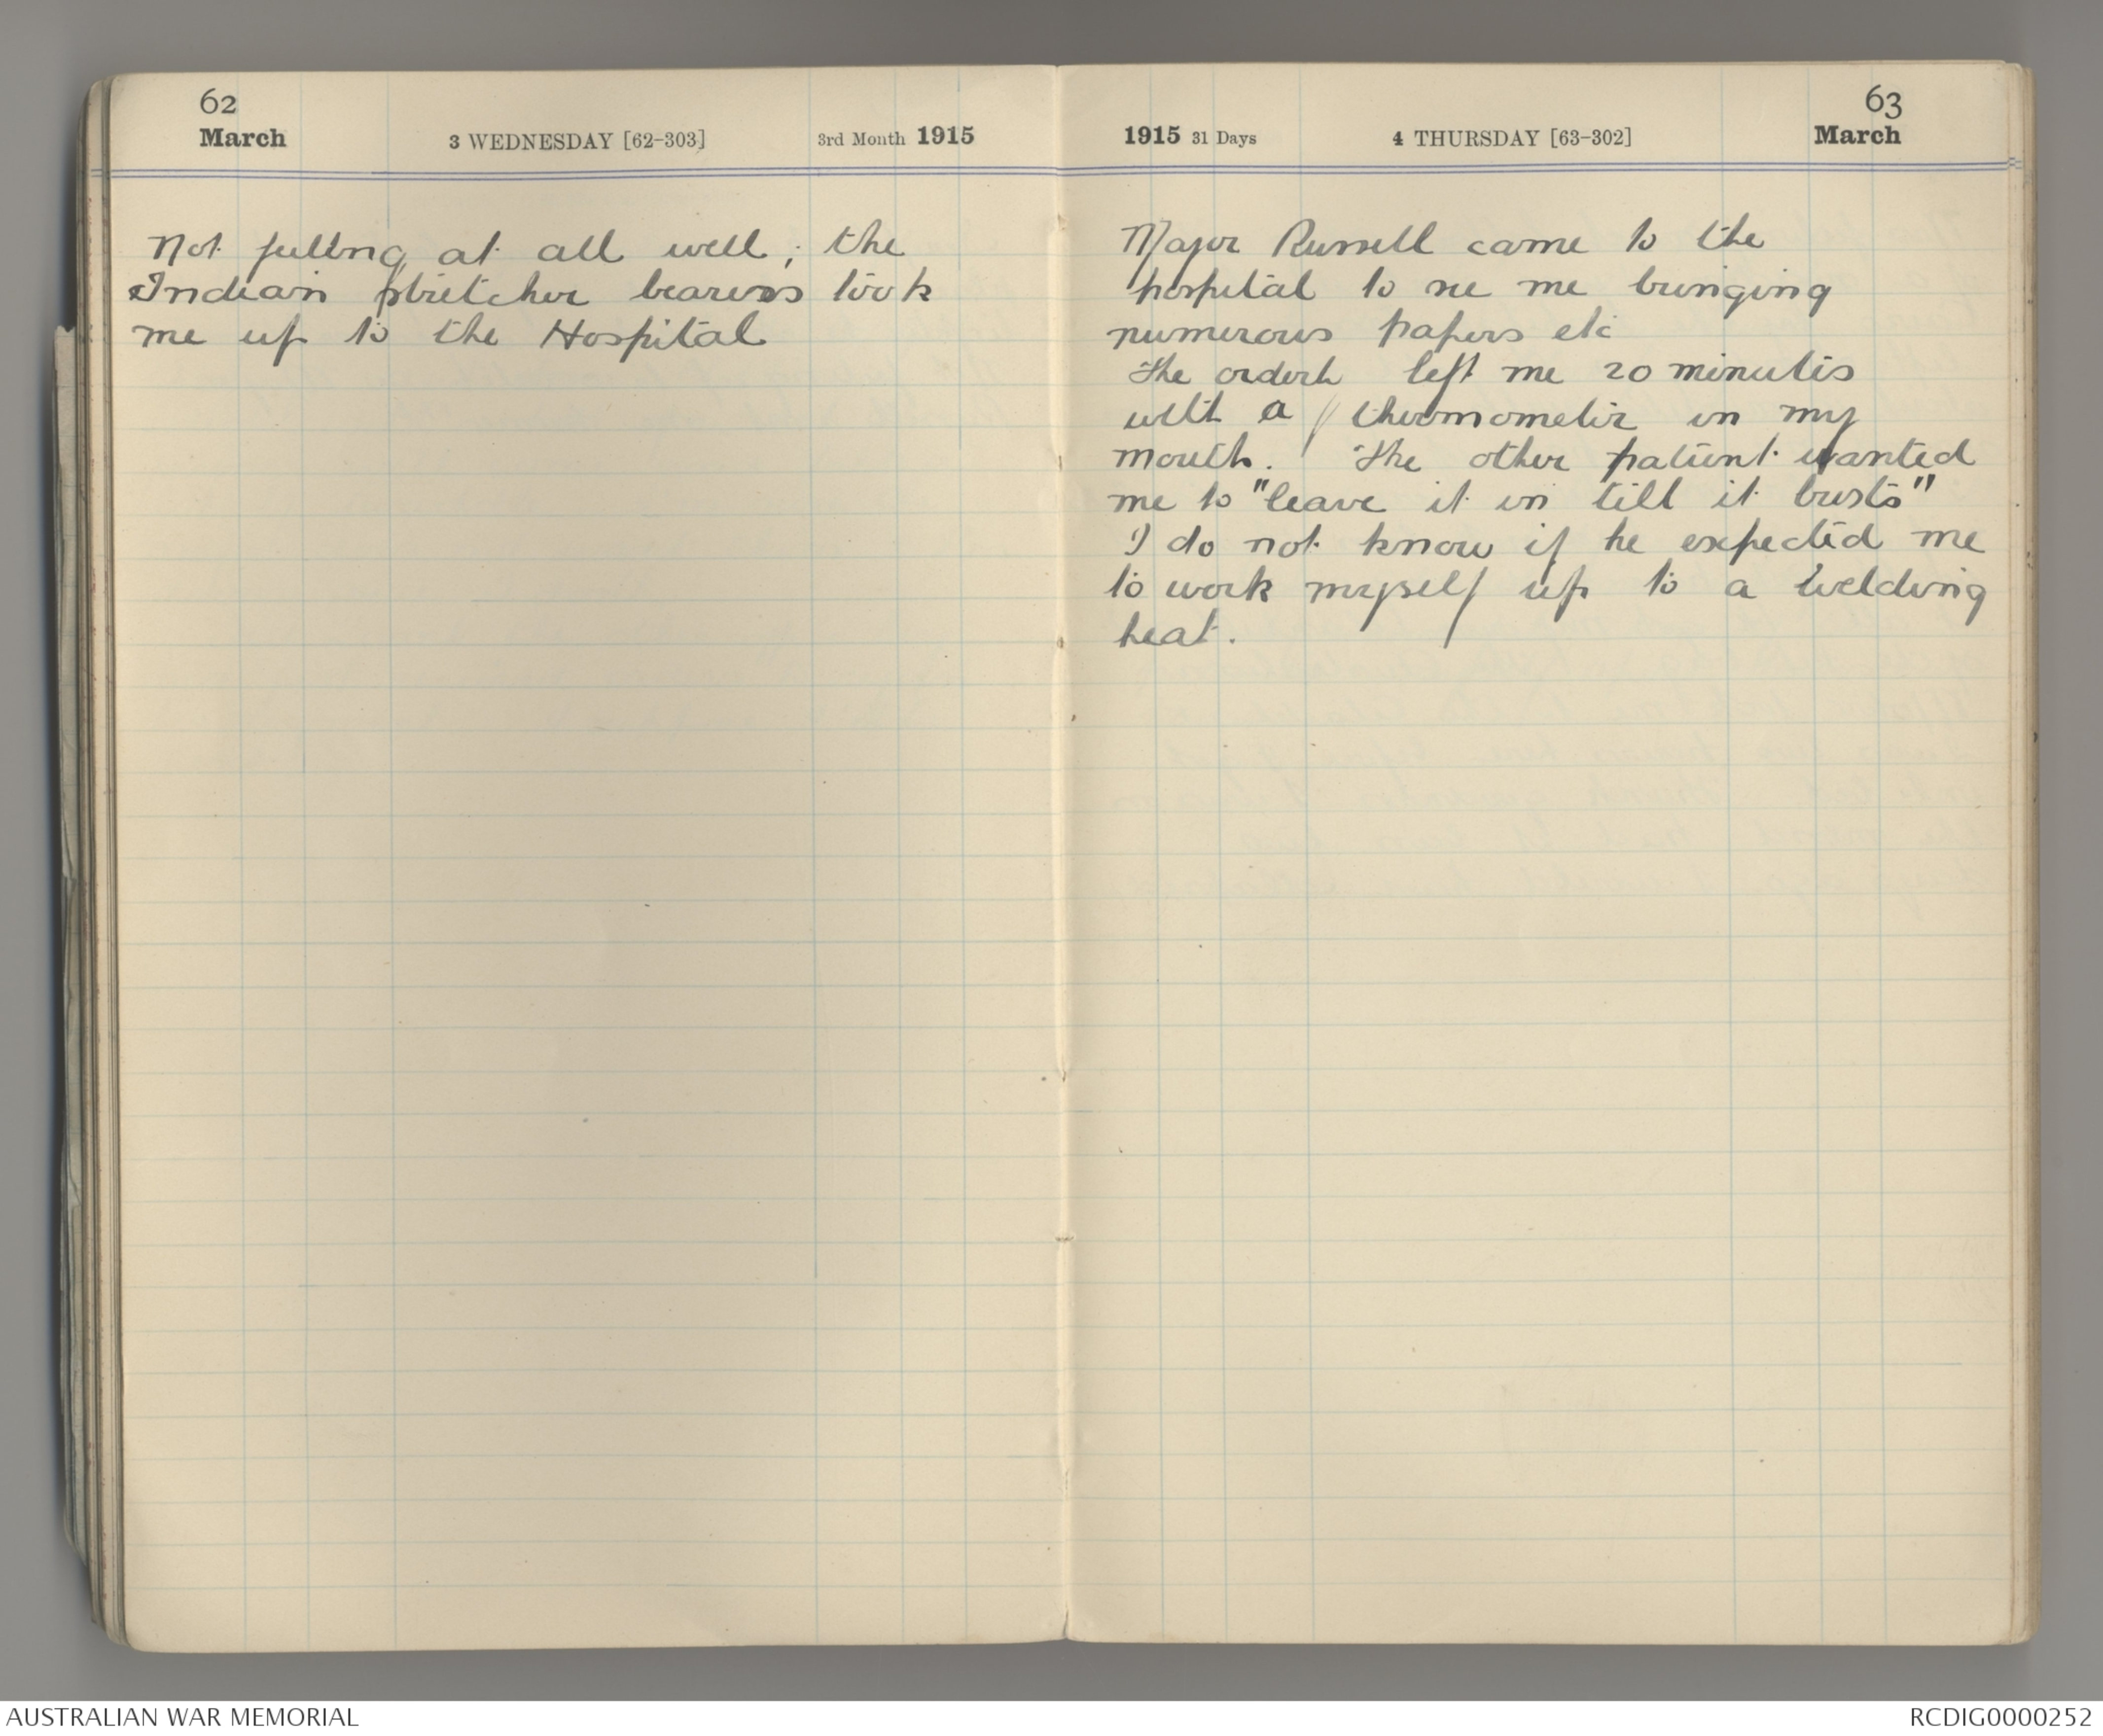 62
March 3 WEDNESDAY [62-303] 3rd Month 1915
Not feeling at all well; the
Indian stretcher bearers took
me up to the Hospital
63
1915 31 Days 4 THURSDAY [63-302] March
Major Russell came to the
hospital to see me bringing
numerous papers etc
The orderly left me 20 minutes
with a thermometer in my
mouth. The other patient wanted
me to "leave it in till it busts"
I do not know if he expected me
to work myself up to a welding
heat.
AUSTRALIAN WAR MEMORIAL RCDIG0000252